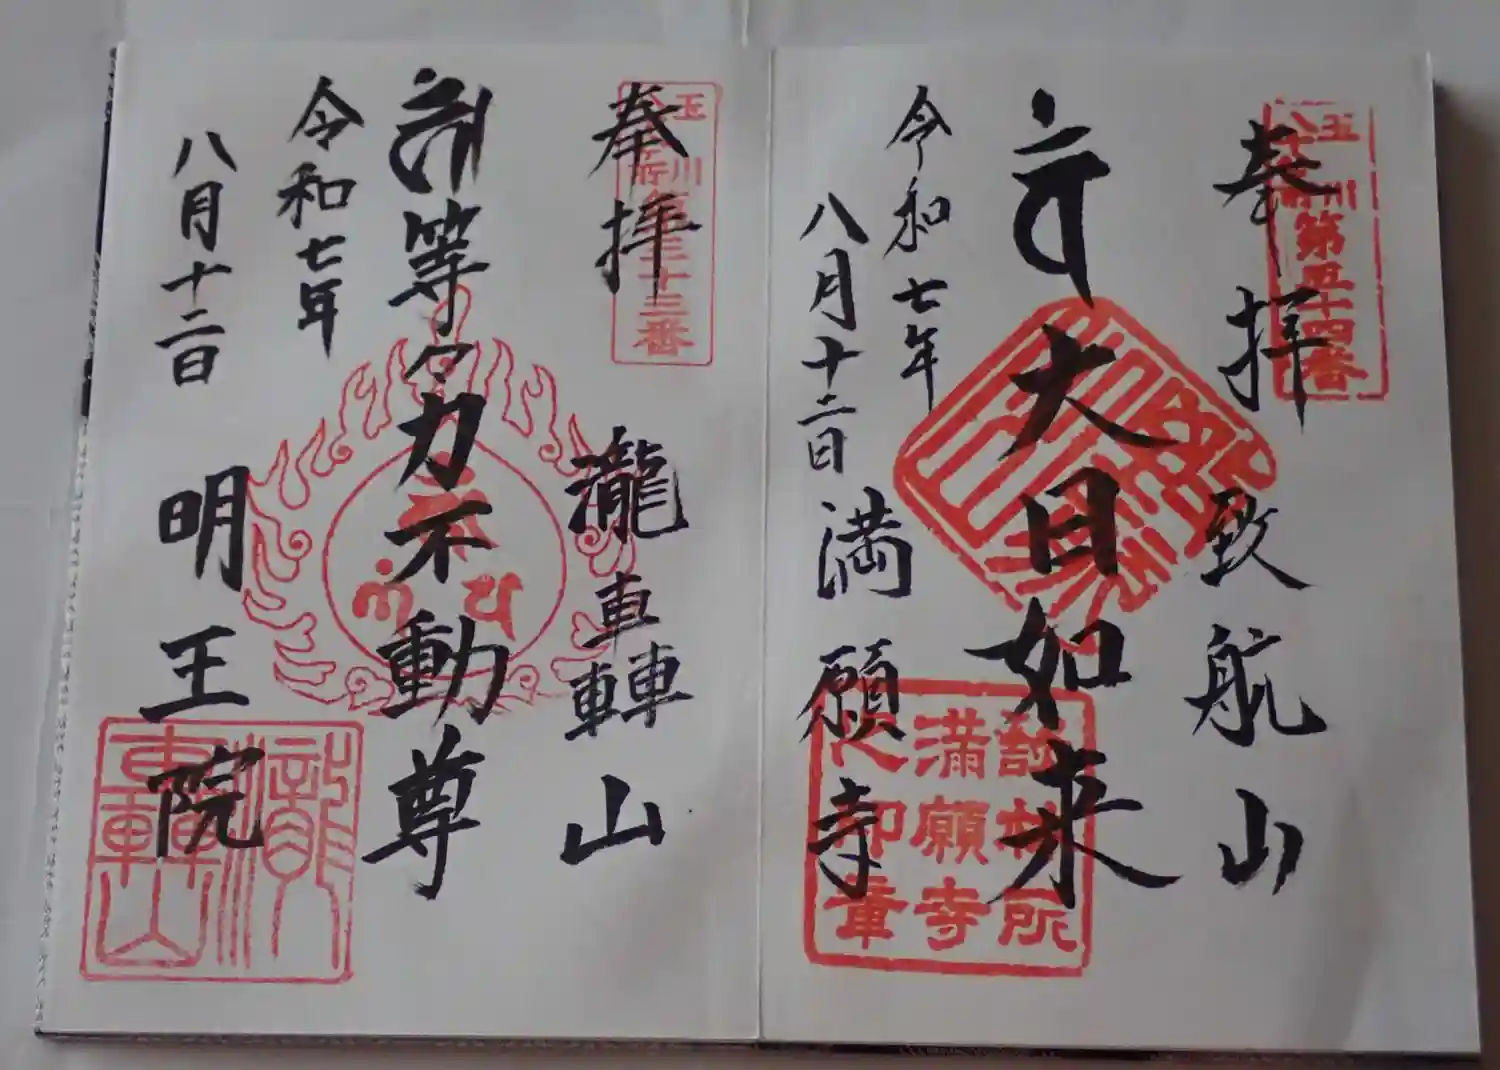 奉拝
玉川
八十八ヶ所
第五十四番
致航山
大日如来
令和七年
八月十二日
満願寺
満願寺
之印章
奉拝
玉川
三十三番
瀧轟山
等々力不動尊
令和七年
八月十二日
明王院
瀧
轟山